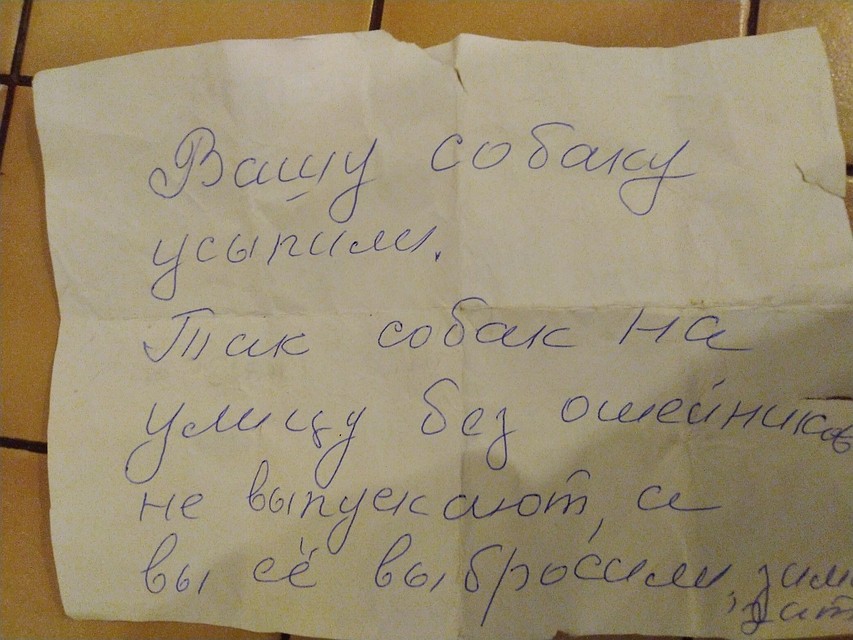 Вашу собаку
усыпили.
Так собак на
улицу без ошейников
не выпускают, а
вы её выбросили,